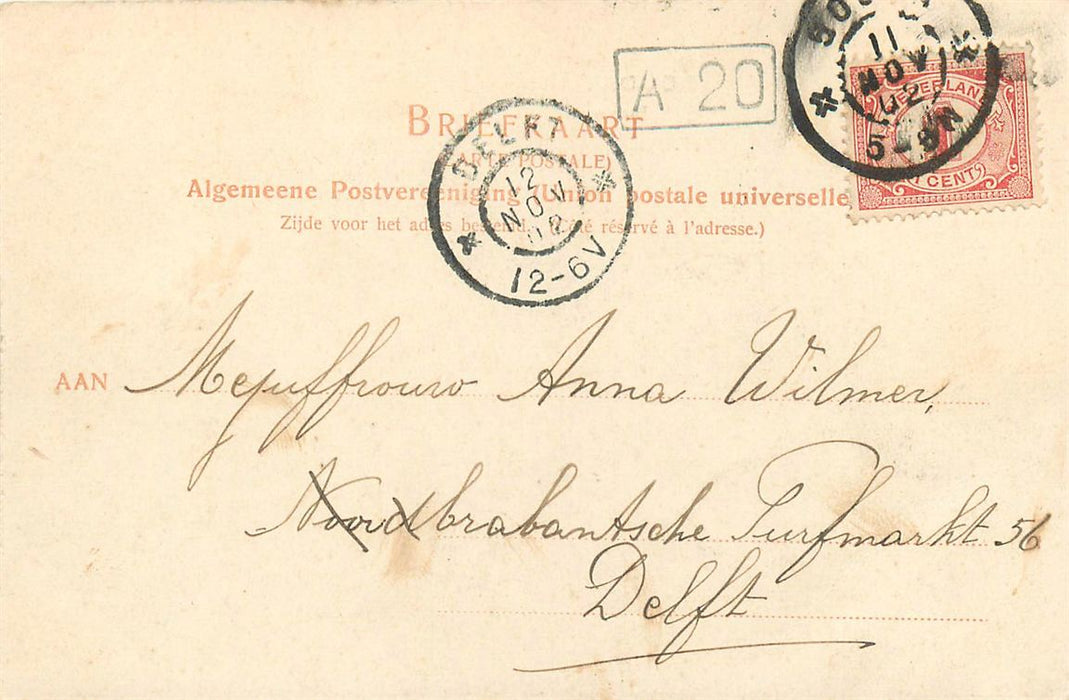 A 20
11
NOV
02
5-8N
NEDERLAND
1
1 CENT
BRIEFKAART
(CARTE POSTALE)
Algemeene Postvereeniging (Union postale universelle
Zijde voor het adres bestemd. (Côté réservé à l'adresse.)
DELFT
12
NOV
02
12-6V
AAN Mejuffrouw Anna Wilmer,
Noordbrabantsche Turfmarkt 56
Delft